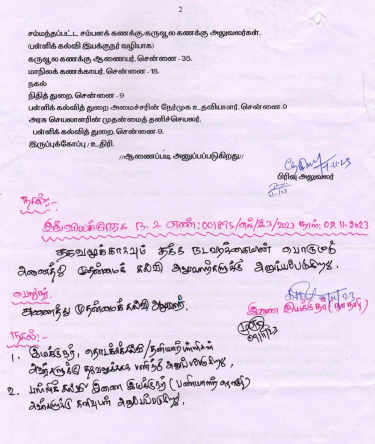 2
சம்மந்தப்பட்ட சம்பளக் கணக்கு/கருவூல கணக்கு அலுவலர்கள்.
(பள்ளிக் கல்வி இயக்குநர் வழியாக)
கருவூல கணக்கு ஆணையர், சென்னை - 35.
மாநிலக் கணக்காயர், சென்னை - 18.
நகல்
நிதித் துறை, சென்னை - 9
பள்ளிக் கல்வித் துறை அமைச்சரின் நேர்முக உதவியாளர், சென்னை-9
அரசு செயலாளரின் முதன்மைத் தனிச்செயலர்,
பள்ளிக் கல்வித் துறை, சென்னை-9.
இருப்புக்கோப்பு / உதிரி.
//ஆணைப்படி அனுப்பப்படுகிறது//
பிரிவு அலுவலர்
நகல்:-
இவ்வியக்குநரக ந.க எண்: 001895/எல்/இ3/2023 நாள்: 09.11.2023
தகவலுக்காகவும் தக்க நடவடிக்கையின் பொருட்டு
அனைத்து முதன்மைக் கல்வி அலுவலர்களுக்கு அனுப்பப்படுகிறது.
பெறுநர்
அனைத்து முதன்மைக் கல்வி அலுவலர்
இணை இயக்குநர் (நாநதி)
நகல்:-
1. இயக்குநர், தொடக்கக்கல்வி / தனியார் பள்ளிகள்
அவர்களுக்கு தகவலுக்காக பணிந்து அனுப்பப்படுகிறது.
2. பள்ளிக்கல்வி இணை இயக்குநர் (பணியாளர் தொகுதி)
அவர்களுக்கு கனிவுடன் அனுப்பப்படுகிறது.